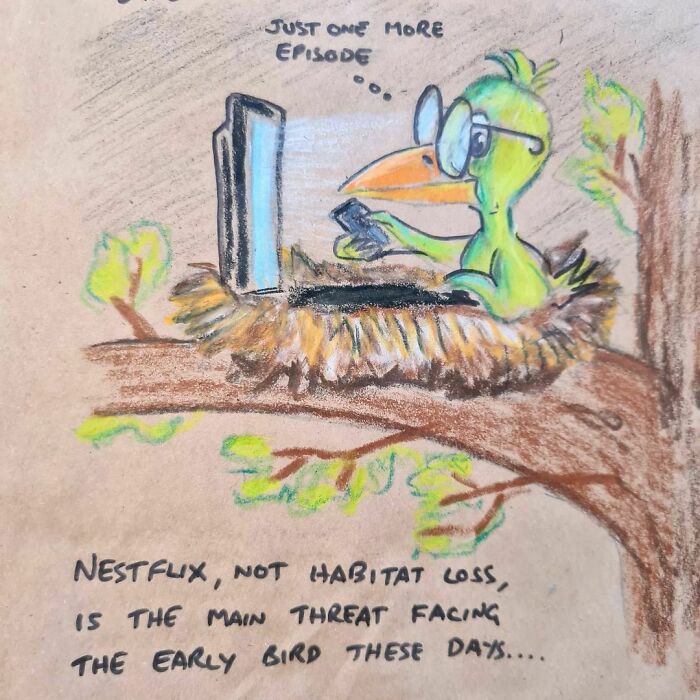 JUST ONE MORE
EPISODE
NESTFLIX, NOT HABITAT LOSS,
IS THE MAIN THREAT FACING
THE EARLY BIRD THESE DAYS....